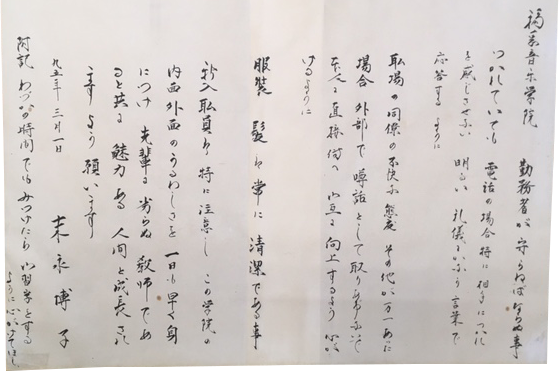 福末音楽学院 勤務者が守らねばならぬ事
つかれていても 電話の場合特に相手につかれ
を感じさせない 明るい 礼儀にかなう言葉で
応答する ように
職場の同僚の不快な態度 その他が万一あった
場合 外部で噂話として取りあげないで
本人に直接伝へ お互に向上するよう 心が
けるように
服装 髪は常に清潔である事
新入職員は 特に注意し この学院の
内面 外面のうるわしさを 一日も早く身
につけ 先輩に劣らぬ 教師であ
ると共に 魅力ある 人間と成長され
ます よう 願います
九五年 三月一日
末永博子
附記 わづかの時間でもみつけたら お習字をする
ように心がけてほしい